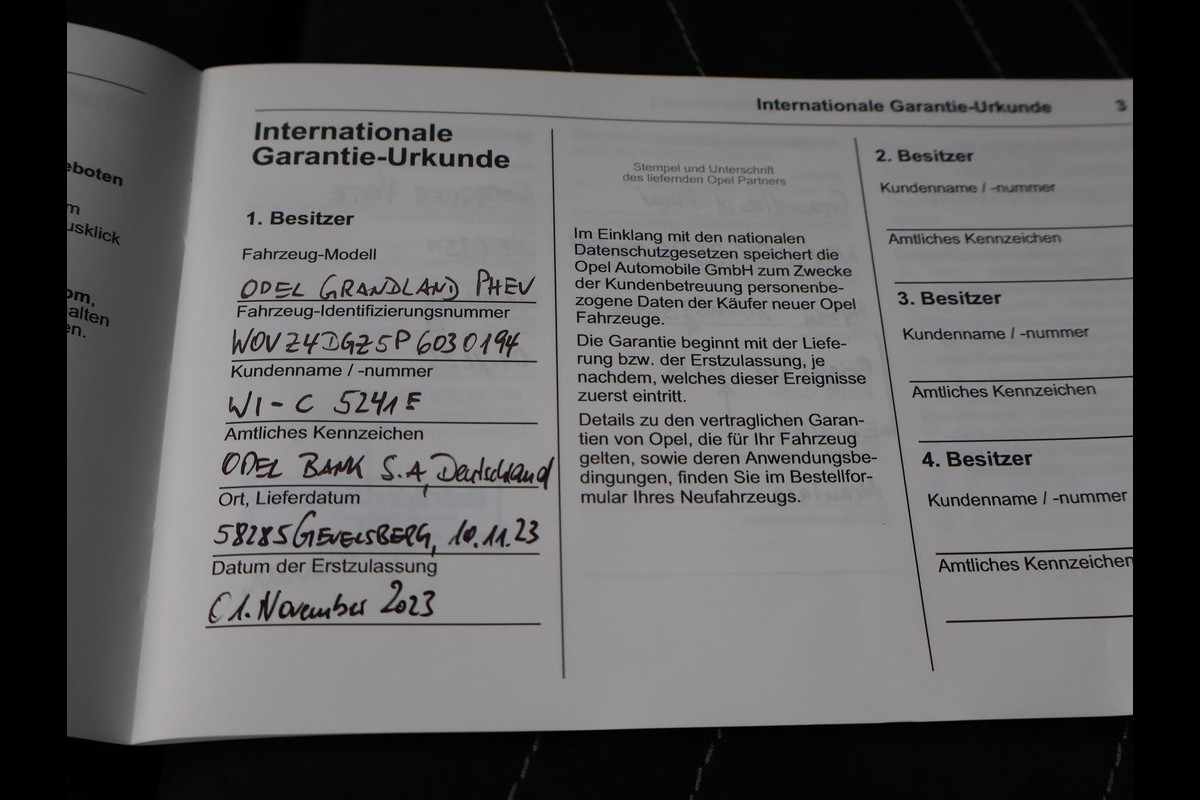 eboten
m
usklick
om,
alten
en.
Internationale Garantie-Urkunde 3
Internationale
Garantie-Urkunde
1. Besitzer
Fahrzeug-Modell
OPEL GRANDLAND PHEV
Fahrzeug-Identifizierungsnummer
WOVZ4DGZ5P6030194
Kundenname / -nummer
WI-C 5241E
Amtliches Kennzeichen
OPEL BANK S.A, Deutschland
Ort, Lieferdatum
58285 GEVELSBERG, 10.11.23
Datum der Erstzulassung
01. November 2023
Stempel und Unterschrift
des liefernden Opel Partners
Im Einklang mit den nationalen
Datenschutzgesetzen speichert die
Opel Automobile GmbH zum Zwecke
der Kundenbetreuung personenbe-
zogene Daten der Käufer neuer Opel
Fahrzeuge.
Die Garantie beginnt mit der Liefe-
rung bzw. der Erstzulassung, je
nachdem, welches dieser Ereignisse
zuerst eintritt.
Details zu den vertraglichen Garan-
tien von Opel, die für Ihr Fahrzeug
gelten, sowie deren Anwendungsbe-
dingungen, finden Sie im Bestellfor-
mular Ihres Neufahrzeugs.
2. Besitzer
Kundenname / -nummer
Amtliches Kennzeichen
3. Besitzer
Kundenname / -nummer
Amtliches Kennzeichen
4. Besitzer
Kundenname / -nummer
Amtliches Kennzeichen